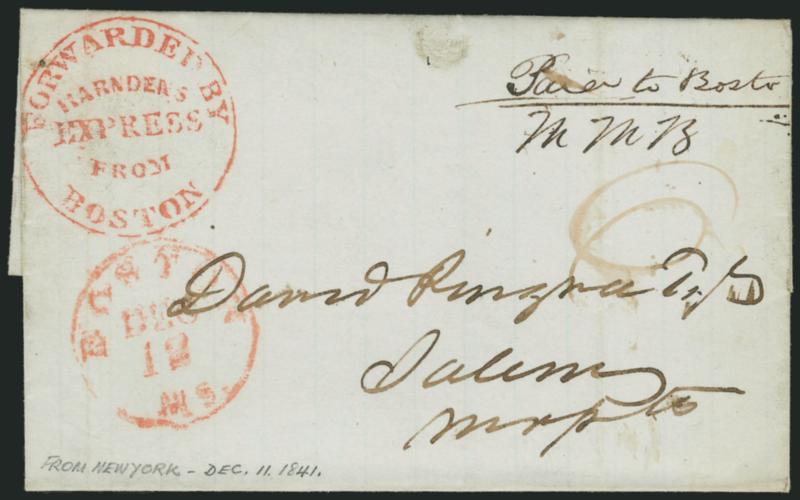 FORWARDED BY
HARNDEN'S
EXPRESS
FROM
BOSTON
Paid to Bosto
M M B
BOSTON
DEC
12
MS.
David Pingree
Salem
FROM NEW YORK - DEC. 11. 1841.